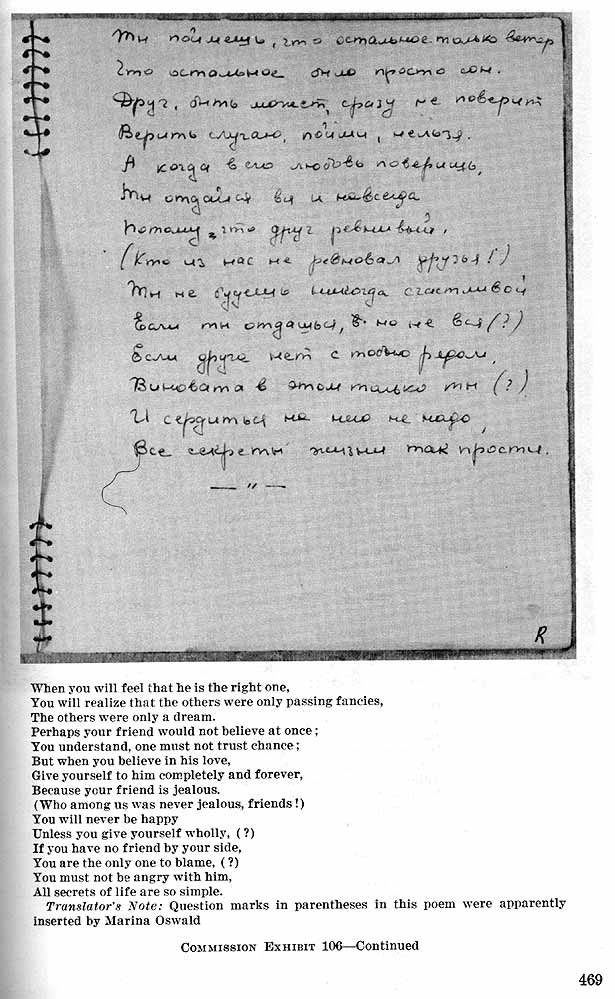 Ты поймешь, что остальное только ветер
Что остальное было просто сон.
Друг, быть может, сразу не поверит
Верить случаю, пойми, нельзя.
А когда в его любовь поверишь,
Ты отдайся вся и навсегда
Потому, что друг ревнивый.
(Кто из нас не ревновал друзья!)
Ты не будешь никогда счастливой
Если ты отдашься, но не вся (?)
Если друга нет с тобою рядом,
Виновата в этом только ты (?)
И сердиться на него не надо,
Все секреты жизни так просты.
— " —
R
When you will feel that he is the right one,
You will realize that the others were only passing fancies,
The others were only a dream.
Perhaps your friend would not believe at once;
You understand, one must not trust chance;
But when you believe in his love,
Give yourself to him completely and forever,
Because your friend is jealous.
(Who among us was never jealous, friends!)
You will never be happy
Unless you give yourself wholly, (?)
If you have no friend by your side,
You are the only one to blame, (?)
You must not be angry with him,
All secrets of life are so simple.
Translator's Note: Question marks in parentheses in this poem were apparently
inserted by Marina Oswald
COMMISSION EXHIBIT 106—Continued
469